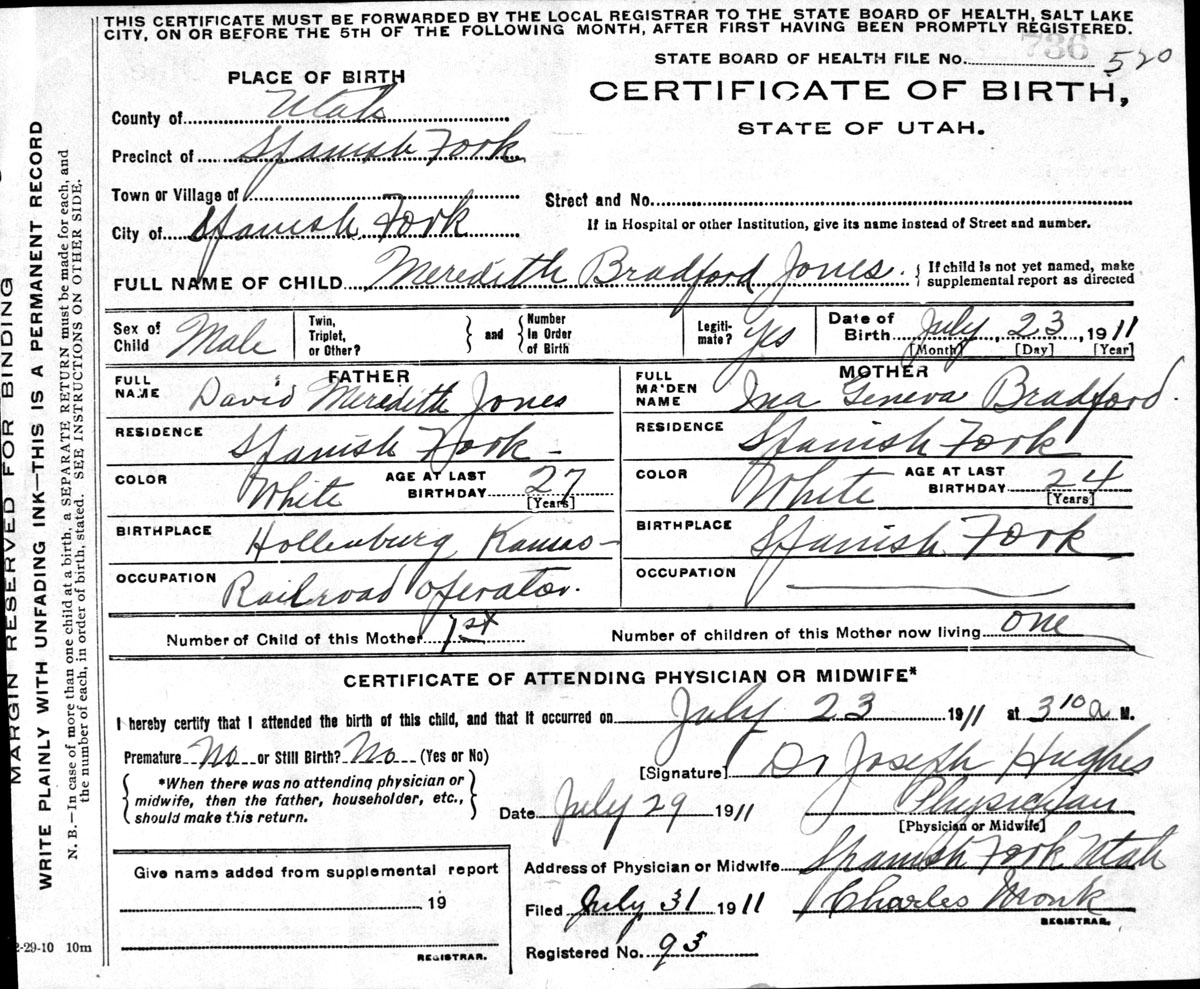 THIS CERTIFICATE MUST BE FORWARDED BY THE LOCAL REGISTRAR TO THE STATE BOARD OF HEALTH, SALT LAKE
CITY, ON OR BEFORE THE 5TH OF THE FOLLOWING MONTH, AFTER FIRST HAVING BEEN PROMPTLY REGISTERED.
736
STATE BOARD OF HEALTH FILE No. 520
PLACE OF BIRTH
CERTIFICATE OF BIRTH,
STATE OF UTAH.
County of Utah
Precinct of Spanish Fork
Town or Village of
Street and No.
City of Spanish Fork
If in Hospital or other Institution, give its name instead of Street and number.
FULL NAME OF CHILD Meredith Bradford Jones. { If child is not yet named, make
supplemental report as directed
Sex of Child Male
Twin, Triplet, or Other? } and { Number in Order of Birth
Legiti- mate? Yes
Date of Birth July 23, 1911
[Month] [Day] [Year]
FATHER
FULL NAME David Meredith Jones
RESIDENCE Spanish Fork -
COLOR White AGE AT LAST BIRTHDAY 27
[Years]
BIRTHPLACE Hollenburg Kansas -
OCCUPATION Railroad operator.
MOTHER
FULL MAIDEN NAME Ina Geneva Bradford.
RESIDENCE Spanish Fork
COLOR White AGE AT LAST BIRTHDAY 24
[Years]
BIRTHPLACE Spanish Fork
OCCUPATION
Number of Child of this Mother 1st Number of children of this Mother now living one
CERTIFICATE OF ATTENDING PHYSICIAN OR MIDWIFE*
I hereby certify that I attended the birth of this child, and that it occurred on July 23 1911 at 3 10 a M.
Premature No or Still Birth? No (Yes or No)
[Signature] Dr Joseph Hughes
{ *When there was no attending physician or
midwife, then the father, householder, etc.,
should make this return. }
Date July 29 1911 Physician
[Physician or Midwife]
Address of Physician or Midwife Spanish Fork Utah
Give name added from supplemental report
19
REGISTRAR.
Filed July 31 1911 Charles Monk
REGISTRAR.
Registered No. 93
2-29-10 10m
MARGIN RESERVED FOR BINDING
WRITE PLAINLY WITH UNFADING INK—THIS IS A PERMANENT RECORD
N. B.—In case of more than one child at a birth, a SEPARATE RETURN must be made for each, and
the number of each, in order of birth, stated. SEE INSTRUCTIONS ON OTHER SIDE.